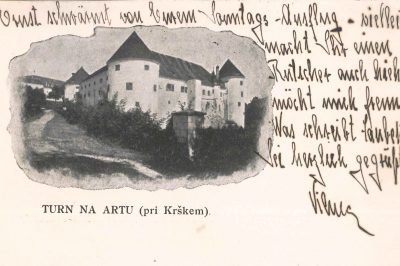 Ernst schwärmt von Einem Sonntags-Ausflug - viellei
macht Ihr einen
Rutscher auch hieh
möcht mich freun
Was schreibt
Sei herzlich gegrüß
TURN NA ARTU (pri Krškem).